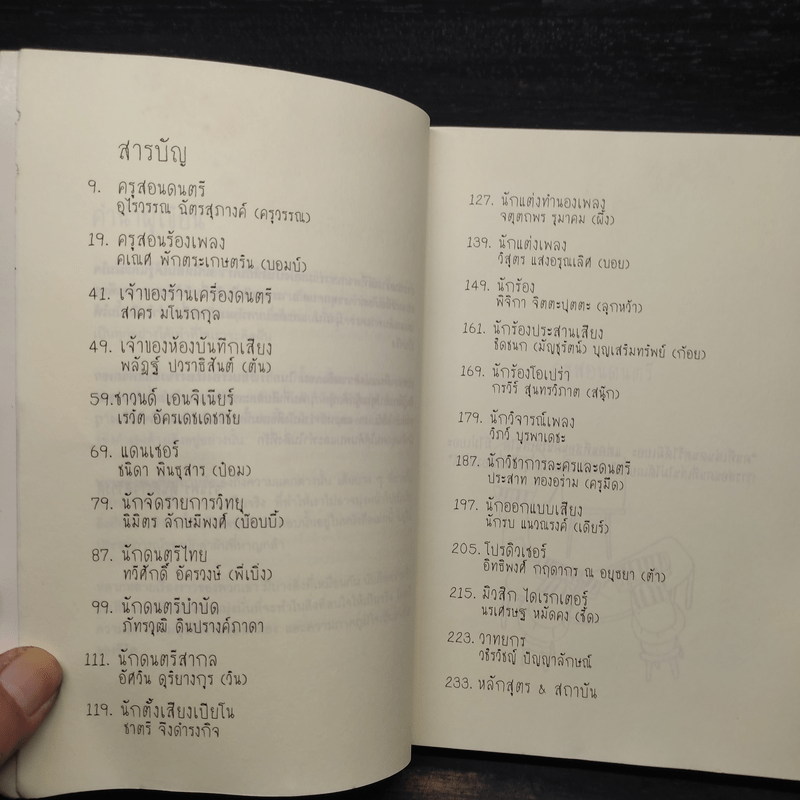 สารบัญ
9. ครูสอนดนตรี
อุไรวรรณ ฉัตรสุภางค์ (ครูวรรณ)
19. ครูสอนร้องเพลง
คเณศ พักตระเกษตริน (บอมบ์)
41. เจ้าของร้านเครื่องดนตรี
สาคร มโนรถกุล
49. เจ้าของห้องบันทึกเสียง
พลัฎฐ์ ปวราธิสันต์ (ต้น)
59. ซาวนด์ เอนจิเนียร์
เรวัต อัครเดชเดชาชัย
69. แดนเซอร์
ชนิดา พันธุสาร (ป๋อม)
79. นักจัดรายการวิทยุ
นิมิตร ลักษมีพงศ์ (บ๊อบบี้)
87. นักดนตรีไทย
ทวีศักดิ์ อัครวงษ์ (พี่เบิ่ง)
99. นักดนตรีบำบัด
ภัทรวุฒิ ดินปรางค์ภาดา
111. นักดนตรีสากล
อัศวิน ดุริยางกูร (วิน)
119. นักตั้งเสียงเปียโน
ชาตรี จึงดำรงกิจ
127. นักแต่งทำนองเพลง
จตุตถพร รุมาคม (ผึ้ง)
139. นักแต่งเพลง
วิสุตร แสงอรุณเลิศ (บอย)
149. นักร้อง
พิจิกา จิตตะปุตตะ (ลูกหว้า)
161. นักร้องประสานเสียง
ธิดชนก (มัญชุรัตน์) บุญเสริมทรัพย์ (ก้อย)
169. นักร้องโอเปร่า
กรวีร์ สุนทรวิภาต (สนุ๊ก)
179. นักวิจารณ์เพลง
วิภว์ บูรพาเดชะ
187. นักวิชาการละครและดนตรี
ประสาท ทองอร่าม (ครูมืด)
197. นักออกแบบเสียง
นักรบ แนวณรงค์ (เดียร์)
205. โปรดิวเซอร์
อิทธิพงศ์ กฤดากร ณ อยุธยา (ต้า)
215. มิวสิก ไดเรกเตอร์
นรเศรษฐ หมัดคง (ชี้ด)
223. วาทยกร
วชิรวิชญ์ ปัญญาลักษณ์
233. หลักสูตร & สถาบัน